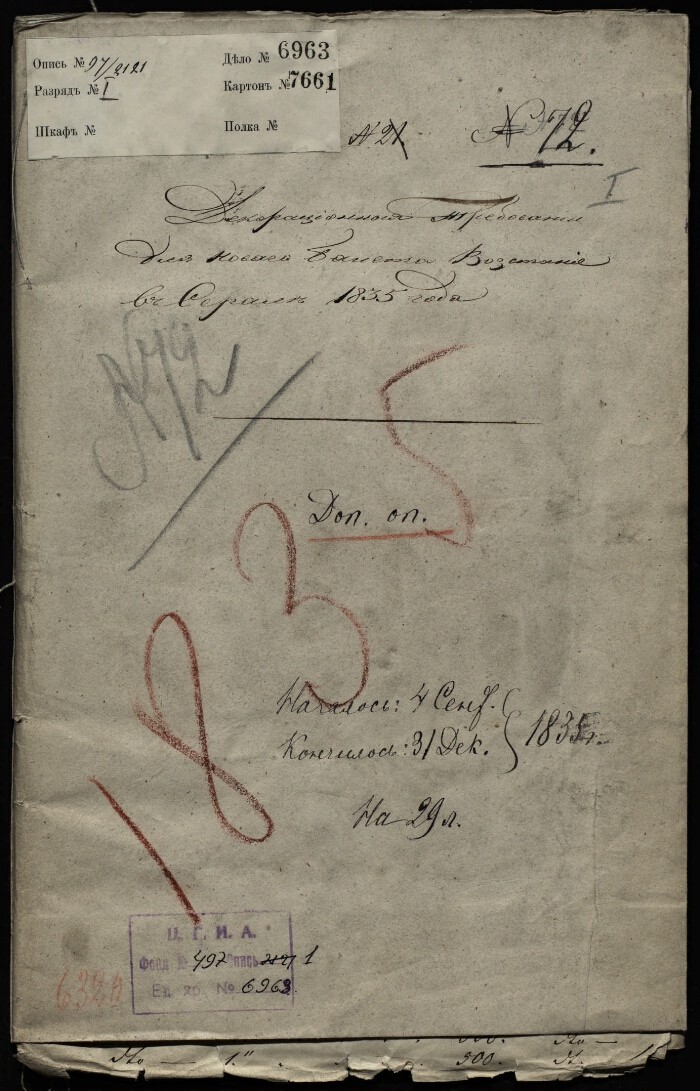 Опись № 97/2121
Дѣло № 6963
Разрядъ № I
Картонъ № 7661
Шкафъ №
Полка №
№ 21
№ 72.
I
Декорационныя Требования
для новаго балета Возстание
въ Сералѣ 1835 года
№ 72
1835
Доп. оп.
Началось: 4 Сент.
Кончилось: 31 Дек.
1835 г.
На 29 л.
Ц. Г. И. А.
Фонд № 497 Опись 2121 1
Ед. хр. № 6963
632
500.